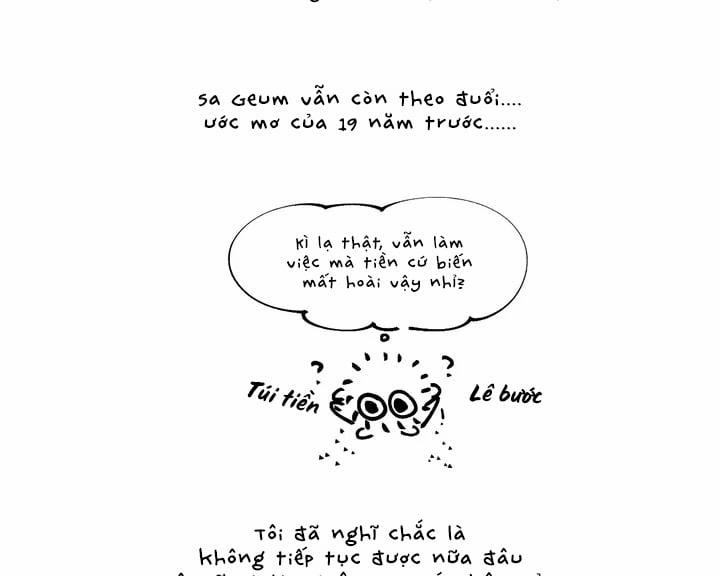 Sa Geum vẫn còn theo đuổi....
ước mơ của 19 năm trước......
Kì lạ thật, vẫn làm
việc mà tiền cứ biến
mất hoài vậy nhỉ?
?
?
Túi tiền
Lê bước
Tôi đã nghĩ chắc là
không tiếp tục được nữa đâu